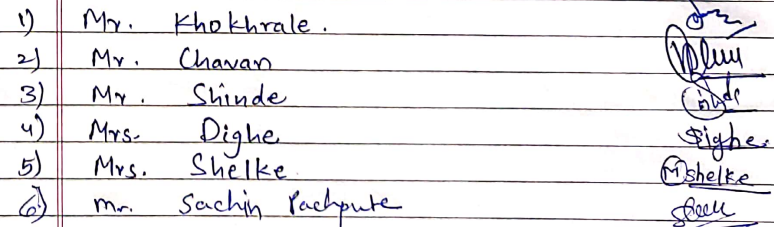 1) Mr. Khokhrale.
2) Mr. Chavan
3) Mr. Shinde
4) Mrs. Dighe Dighe.
5) Mrs. Shelke Mshelke
6) mr. Sachin Pachpute